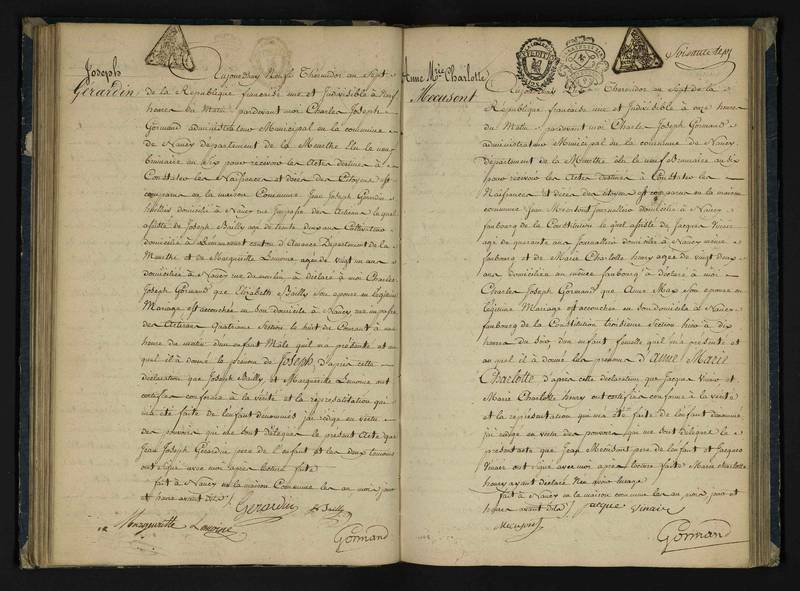 Joseph
Gérardin
Aujourdhuy Neuf Thermidor an Sept
de la République francaise une et Indivisible à Neuf
heures du Matin pardevant moi Charles Joseph
Gormand administrateur Municipal en la commune
de Nancy departement de la Meurthe Elu le neuf
brumaire an six pour recevoir les Actes destinés à
Constater les Naissances et décès des Citoyens est
comparu en la maison Commune Jean Joseph Gérardin
domicilié à Nancy rue des Artisans lequel
assisté de Joseph Bailly agé de trente deux ans Cultivateur
domicilié à canton d'Amance Departement de la
Meurthe et de Marguerite Lemoine agée de vingt un ans
domiciliée à Nancy rue du moulin, à déclaré à moi Charles
Joseph Gormand que Elizabeth Bailly son épouse en légitime
Mariage est accouchée en son domicile à Nancy rue
des Artisans Quatrieme Section le huit du Courant à une
heure du matin d'un enfant Mâle quil m'a présenté et au
quel il à donné le prénom de Joseph, d'après cette
déclaration que Joseph Bailly, et Marguerite Lemoine ont
certifiée conforme à la vérité et la représentation qui
m'a été faite de l'enfant denommé j'ai rédigé en vertu
des pouvoirs qui me sont délégués le présent Acte que
Jean Joseph Gérardin pere de l'enfant et les deux témoins
ont signé avec moi après lecture faite
fait à Nancy en la maison Commune les an mois jour
et heure avant dits
Gerardin
Bailly
Marguerite Lemoine
Gormand
Soisante Sept
Anne Mrie Charlotte
Mocusont
Aujourdhuy Thermidor an Sept de la
République francaise une et Indivisible à onze heures
du Matin pardevant moi Charles Joseph Gormand
administrateur Municipal de la commune de Nancy
Département de la Meurthe élu le neuf brumaire an six
pour recevoir les actes destinés à Constater les
Naissances et décès des citoyens est comparu en la maison
commune Jean Journallier domicilié à Nancy
faubourg de la Constitution le quel assisté de Jacques Vinair
agé de quarante ans Journallier domicilié à Nancy même
faubourg et de Marie Charlotte henry agée de vingt deux
ans domiciliée au même faubourg à déclaré à moi
Charles Joseph Gormand que Anne Max son épouse en
légitime Mariage est accouchée en son domicile à Nancy
faubourg de la Constitution troisieme Section hier à dix
heures du soir, d'un enfant femelle quil m'a présenté et
au quel il à donné les prénoms d'Anne Marie
Charlotte d'après cette déclaration que Jacques Vinair et
Marie Charlotte henry ont certifiée conforme à la vérité
et la représentation qui m'a été faite de l'enfant denommé
j'ai rédigé en vertu des pouvoirs qui me sont délégués le
présent acte que Jean pere de l'enfant et Jacques
Vinair ont signé avec moi après lecture faite Marie Charlotte
henry ayant déclaré Ne avoir lusage
fait à Nancy en la maison commune les an mois jour et
heure avant dits
jacque vinair
Gormand